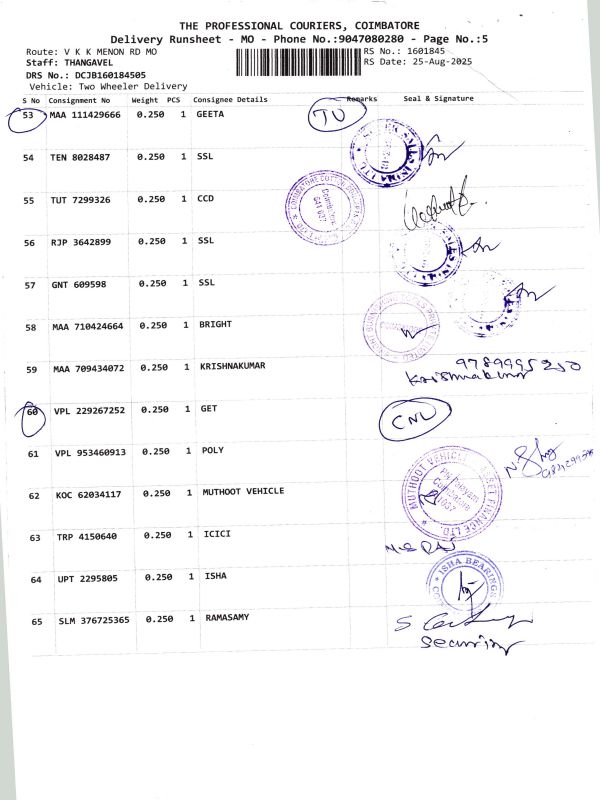 THE PROFESSIONAL COURIERS, COIMBATORE
Delivery Runsheet - MO - Phone No.:9047080280 - Page No.:5
Route: V K K MENON RD MO
RS No.: 1601845
Staff: THANGAVEL
RS Date: 25-Aug-2025
DRS No.: DCJB160184505
Vehicle: Two Wheeler Delivery
S No Consignment No Weight PCS Consignee Details Remarks Seal & Signature
53 MAA 111429666 0.250 1 GEETA
54 TEN 8028487 0.250 1 SSL
55 TUT 7299326 0.250 1 CCD
56 RJP 3642899 0.250 1 SSL
57 GNT 609598 0.250 1 SSL
58 MAA 710424664 0.250 1 BRIGHT
59 MAA 709434072 0.250 1 KRISHNAKUMAR
Krishnakumar
60 VPL 229267252 0.250 1 GET
61 VPL 953460913 0.250 1 POLY
62 KOC 62034117 0.250 1 MUTHOOT VEHICLE
MUTHOOT VEHICLE
FINANCE LTD.
63 TRP 4150640 0.250 1 ICICI
64 UPT 2295805 0.250 1 ISHA
ISHA BEARINGS
65 SLM 376725365 0.250 1 RAMASAMY
Security